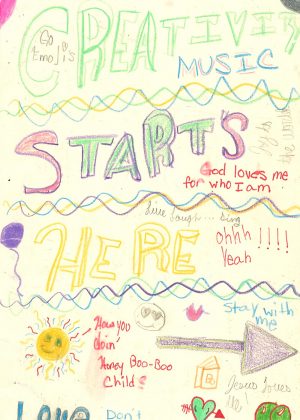 Go
CREATIVITY
MUSIC
STARTS
God loves me
for who I am
Live Laugh... Sing
HERE
ohhh !!!!
Yeah
Stay with
me
How you
doin'
Honey Boo-Boo
Child
Jesus loves
me!
LOVE
Don't